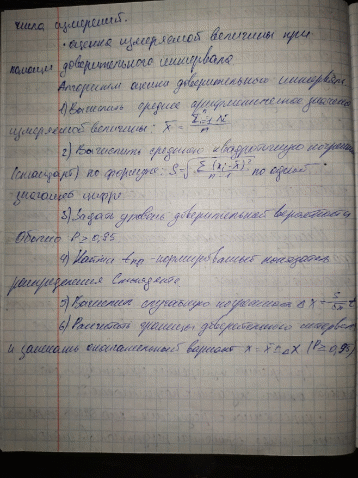 числа измерений.
• оценка измеряемой величины при
помощи доверительного интервала
Алгоритм оценки доверительного интервала
1) Вычислить среднее арифметическое значение
измеряемой величины: X̄ =
2) Вычислить среднюю квадратичную погрешн
(стандарт) по формуле: S = по одной
значащей цифре
3) Задать уровень доверительной вероятности
Обычно P ≥ 0,95
4) Найти нормированный показатель
распределения Стьюдента
5) Вычислить случайную погрешность Δ X =
6) Рассчитать границы доверительного интервала
и записать окончательный вариант x = X̄ ± Δ X (P ≥ 0,95)